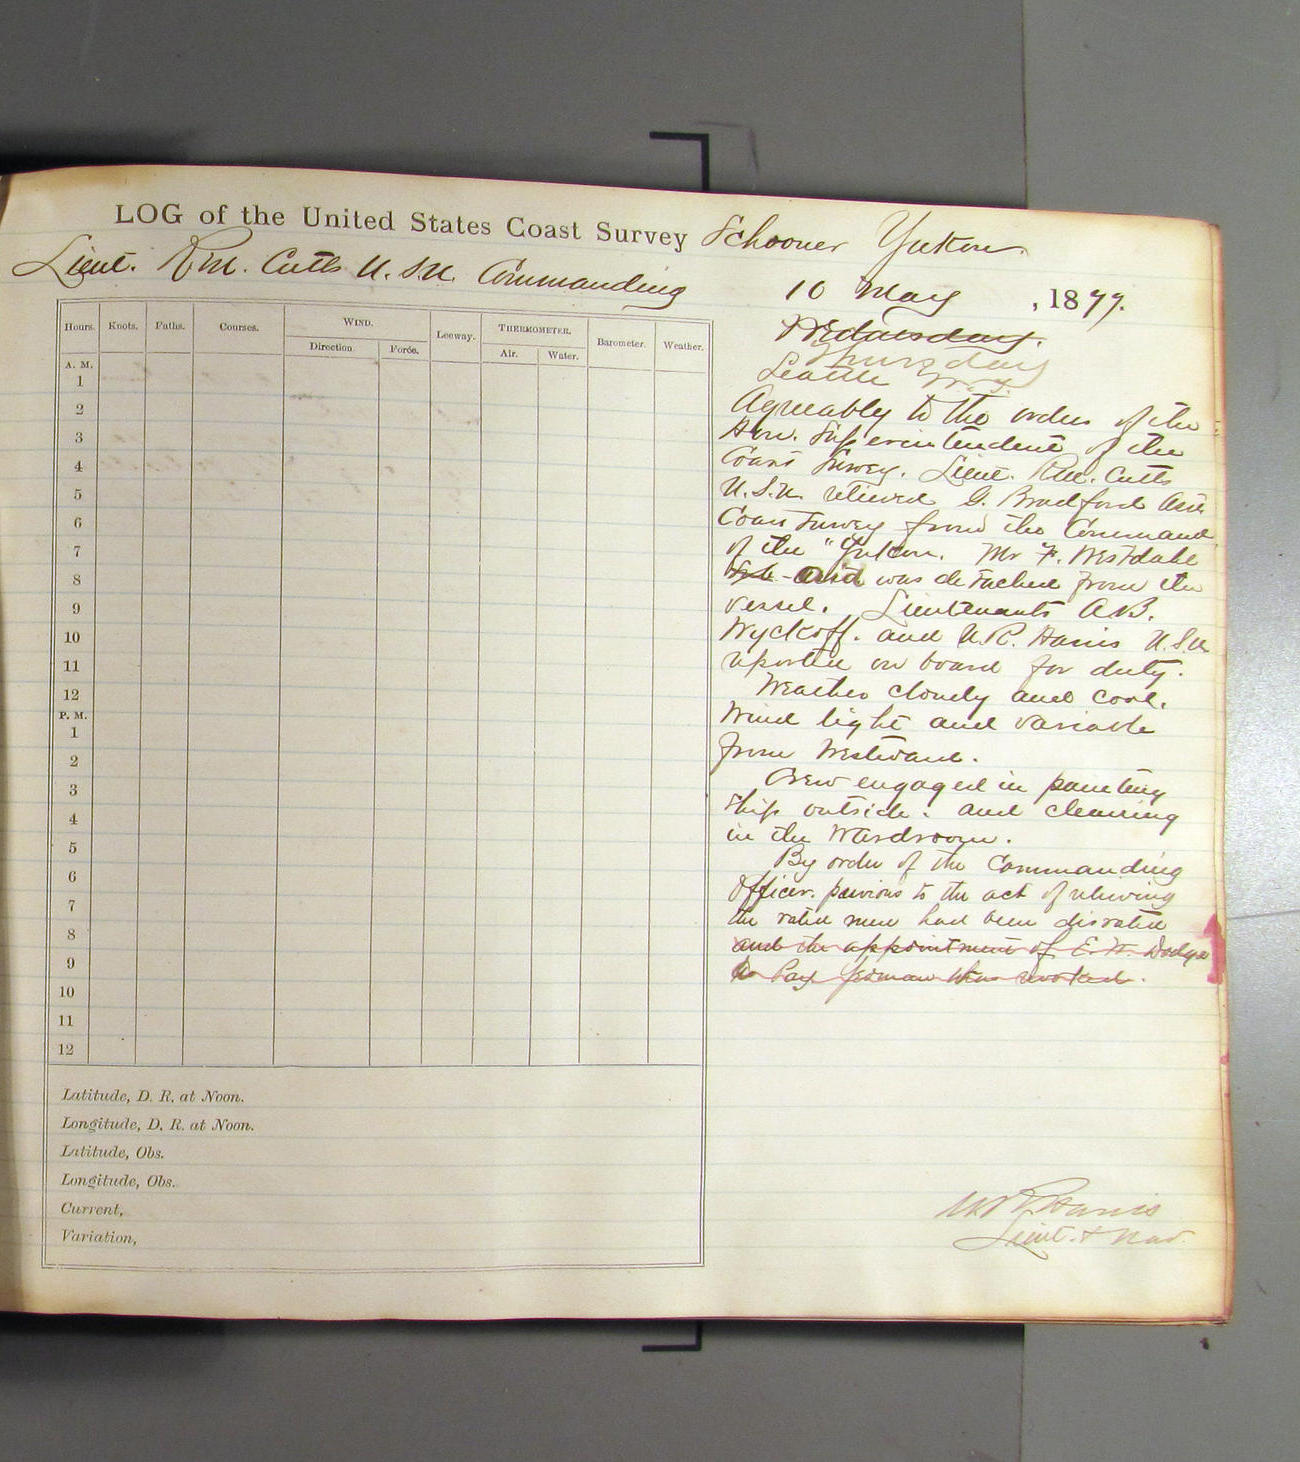 LOG of the United States Coast Survey Schooner Yukon
Lieut. R.M. Cutts U.S.N. Commanding
10 May, 1877.
Wednesday.
Thursday
Seattle W.T.
Hours. Knots. Faths. Courses. WIND. Leeway. THERMOMETER. Barometer. Weather.
Direction Force. Air. Water.
A. M.
1
2
3
4
5
6
7
8
9
10
11
12
P. M.
1
2
3
4
5
6
7
8
9
10
11
12
Latitude, D. R. at Noon.
Longitude, D. R. at Noon.
Latitude, Obs.
Longitude, Obs.
Current,
Variation,
Agreeably to the orders of the
Hon. Superintendent of the
Coast Survey. Lieut. R.M. Cutts
U.S.N. relieved G. Bradford Asst
Coast Survey from the Command
of the "Yukon. Mr F. Westdahl
Sub-Asst was detached from the
vessel. Lieutenants A.B.
Wyckoff. and U.R. Harris U.S.N
reported on board for duty.
Weather cloudy and cool.
Wind light and variable
from Westward.
Crew engaged in painting
ship outside. and cleaning
in the Wardroom.
By order of the Commanding
Officer. previous to the act of relieving
the rated men had been disrated
and the appointment of E. W. Dodge
as Pay Yeoman was revoked.
U R Harris
Lieut. & Nav